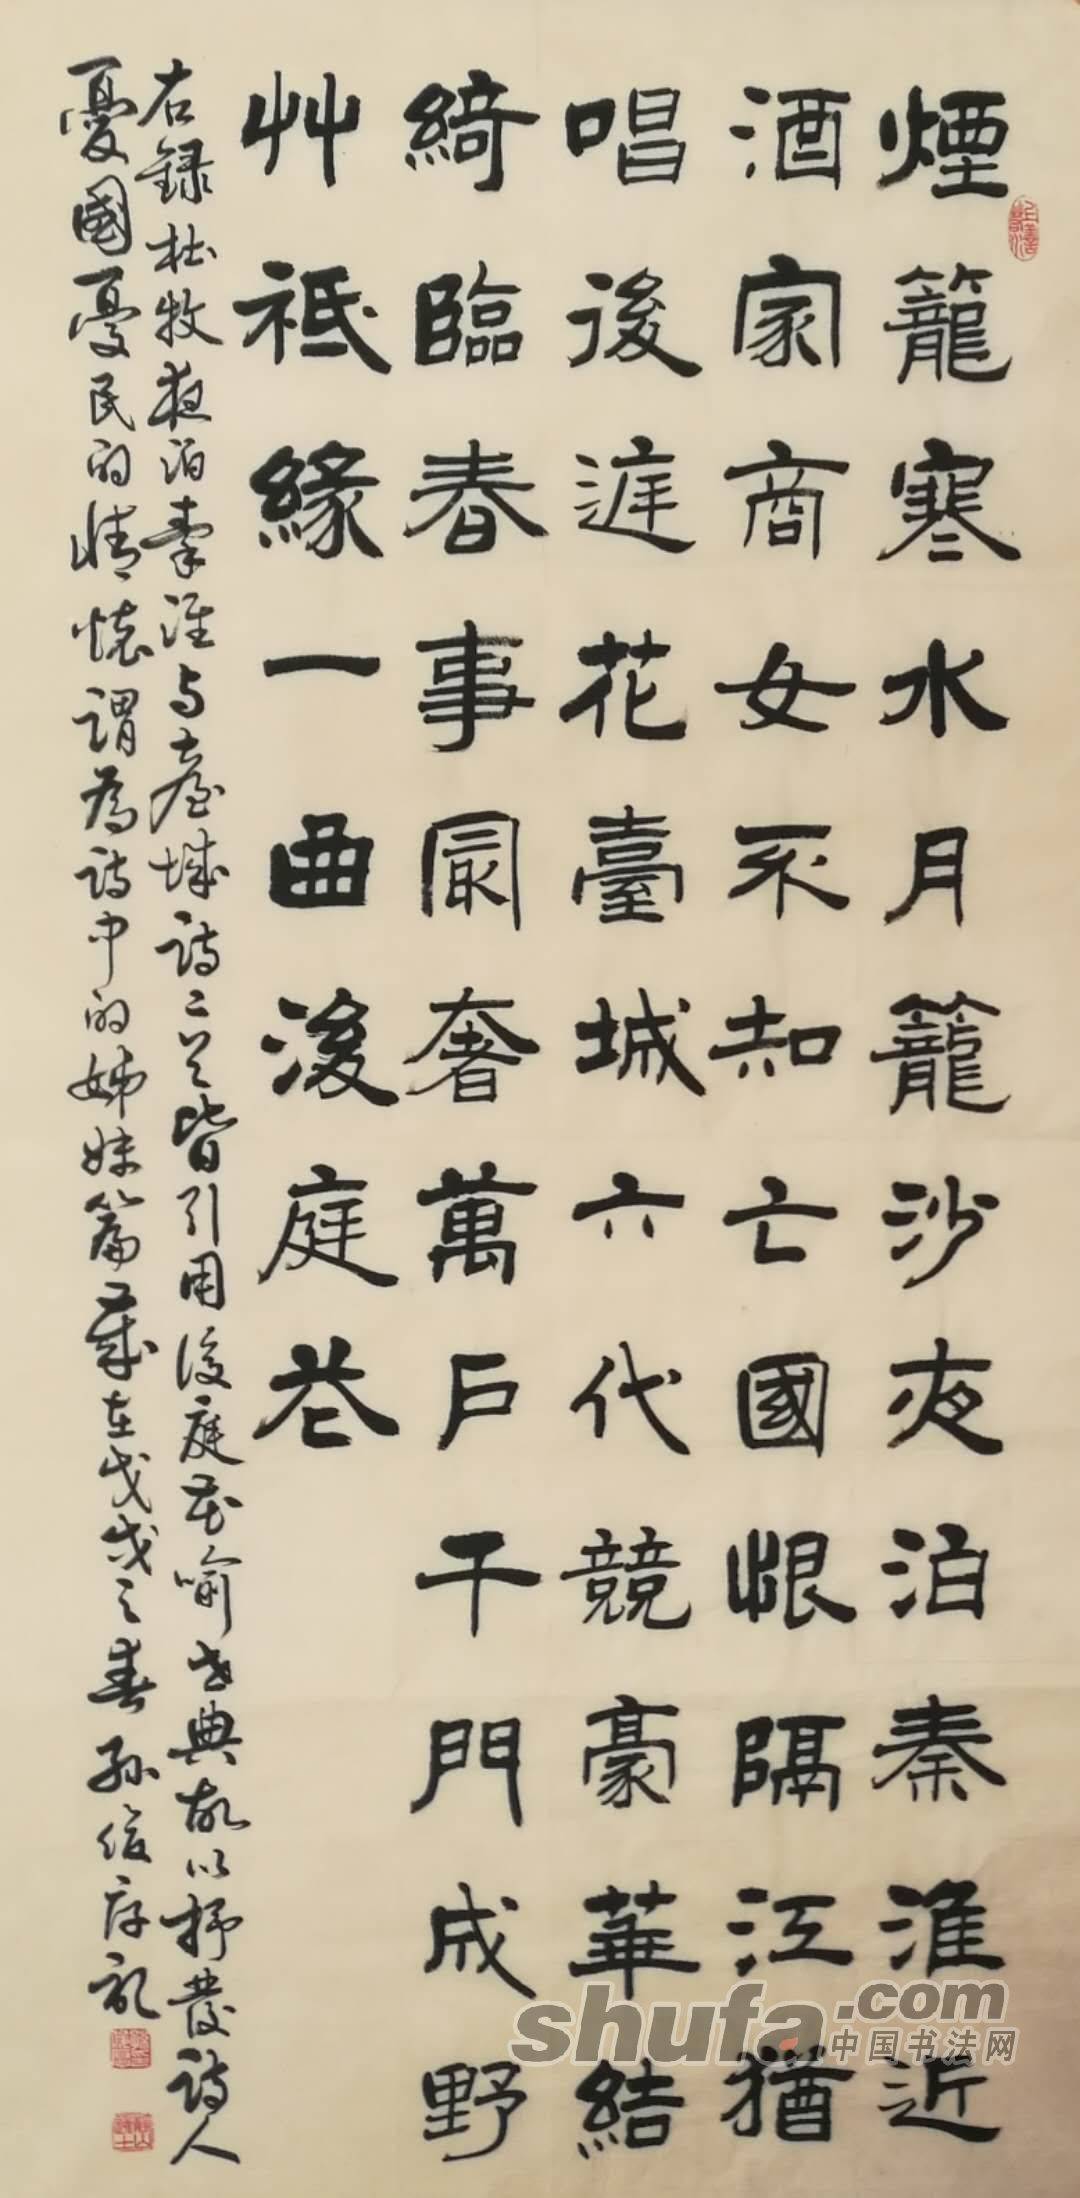 煙籠寒水月籠沙夜泊秦淮近
酒家商女不知亡國恨隔江猶
唱後庭花臺城六代競豪華結
綺臨春事最奢萬戶千門成野
艸祇緣一曲後庭花
右録杜牧夜泊秦淮与臺城詩二首皆引用後庭花喻世典故以抒發詩人
憂國憂民的情懷謂為詩中的姊妹篇歲在戊戌之春孫俊存記
shufa.com
中国书法网